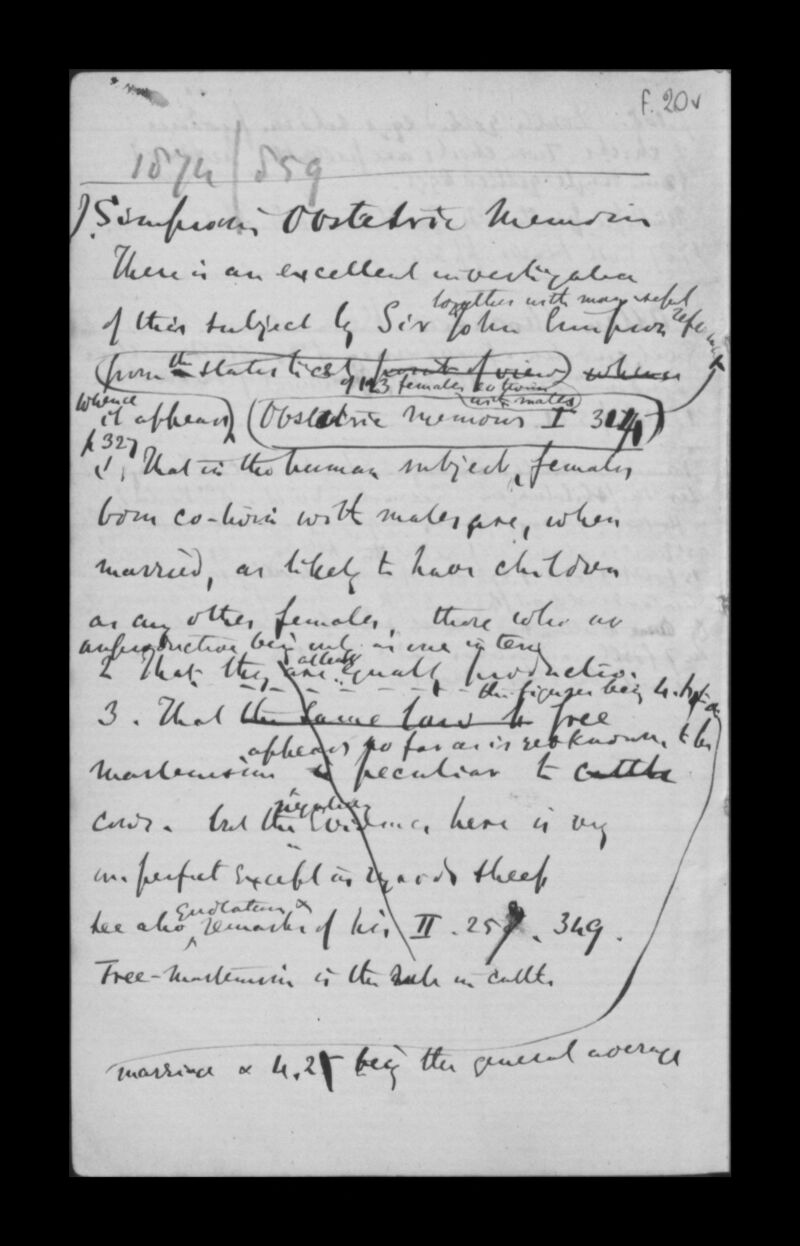 f. 20v
1874/859
Simpson's Obstetric Memoirs
There is an excellent investigation
together with many useful
of this subject by Sir John Simpson references
from the statistical point of view whence
of 123 females co-born
with males
whence
it appears (Obstetric Memoirs I
p 327
1, That in the human subject, females
born co-born with males are, when
married, as likely to have children
as any other females, those who are
unproductive being only as one in ten
2 That they are equally productive
the figures being
3. That the same law free
appears so far as is yet known, to be
martinism is peculiar to cattle
cows. but the evidence here is very
negative
imperfect except as regards sheep
quotations &
see also remarks of his II. 349.
Free-martinism is the rule in cattle
marriage & 4.2 being the general average